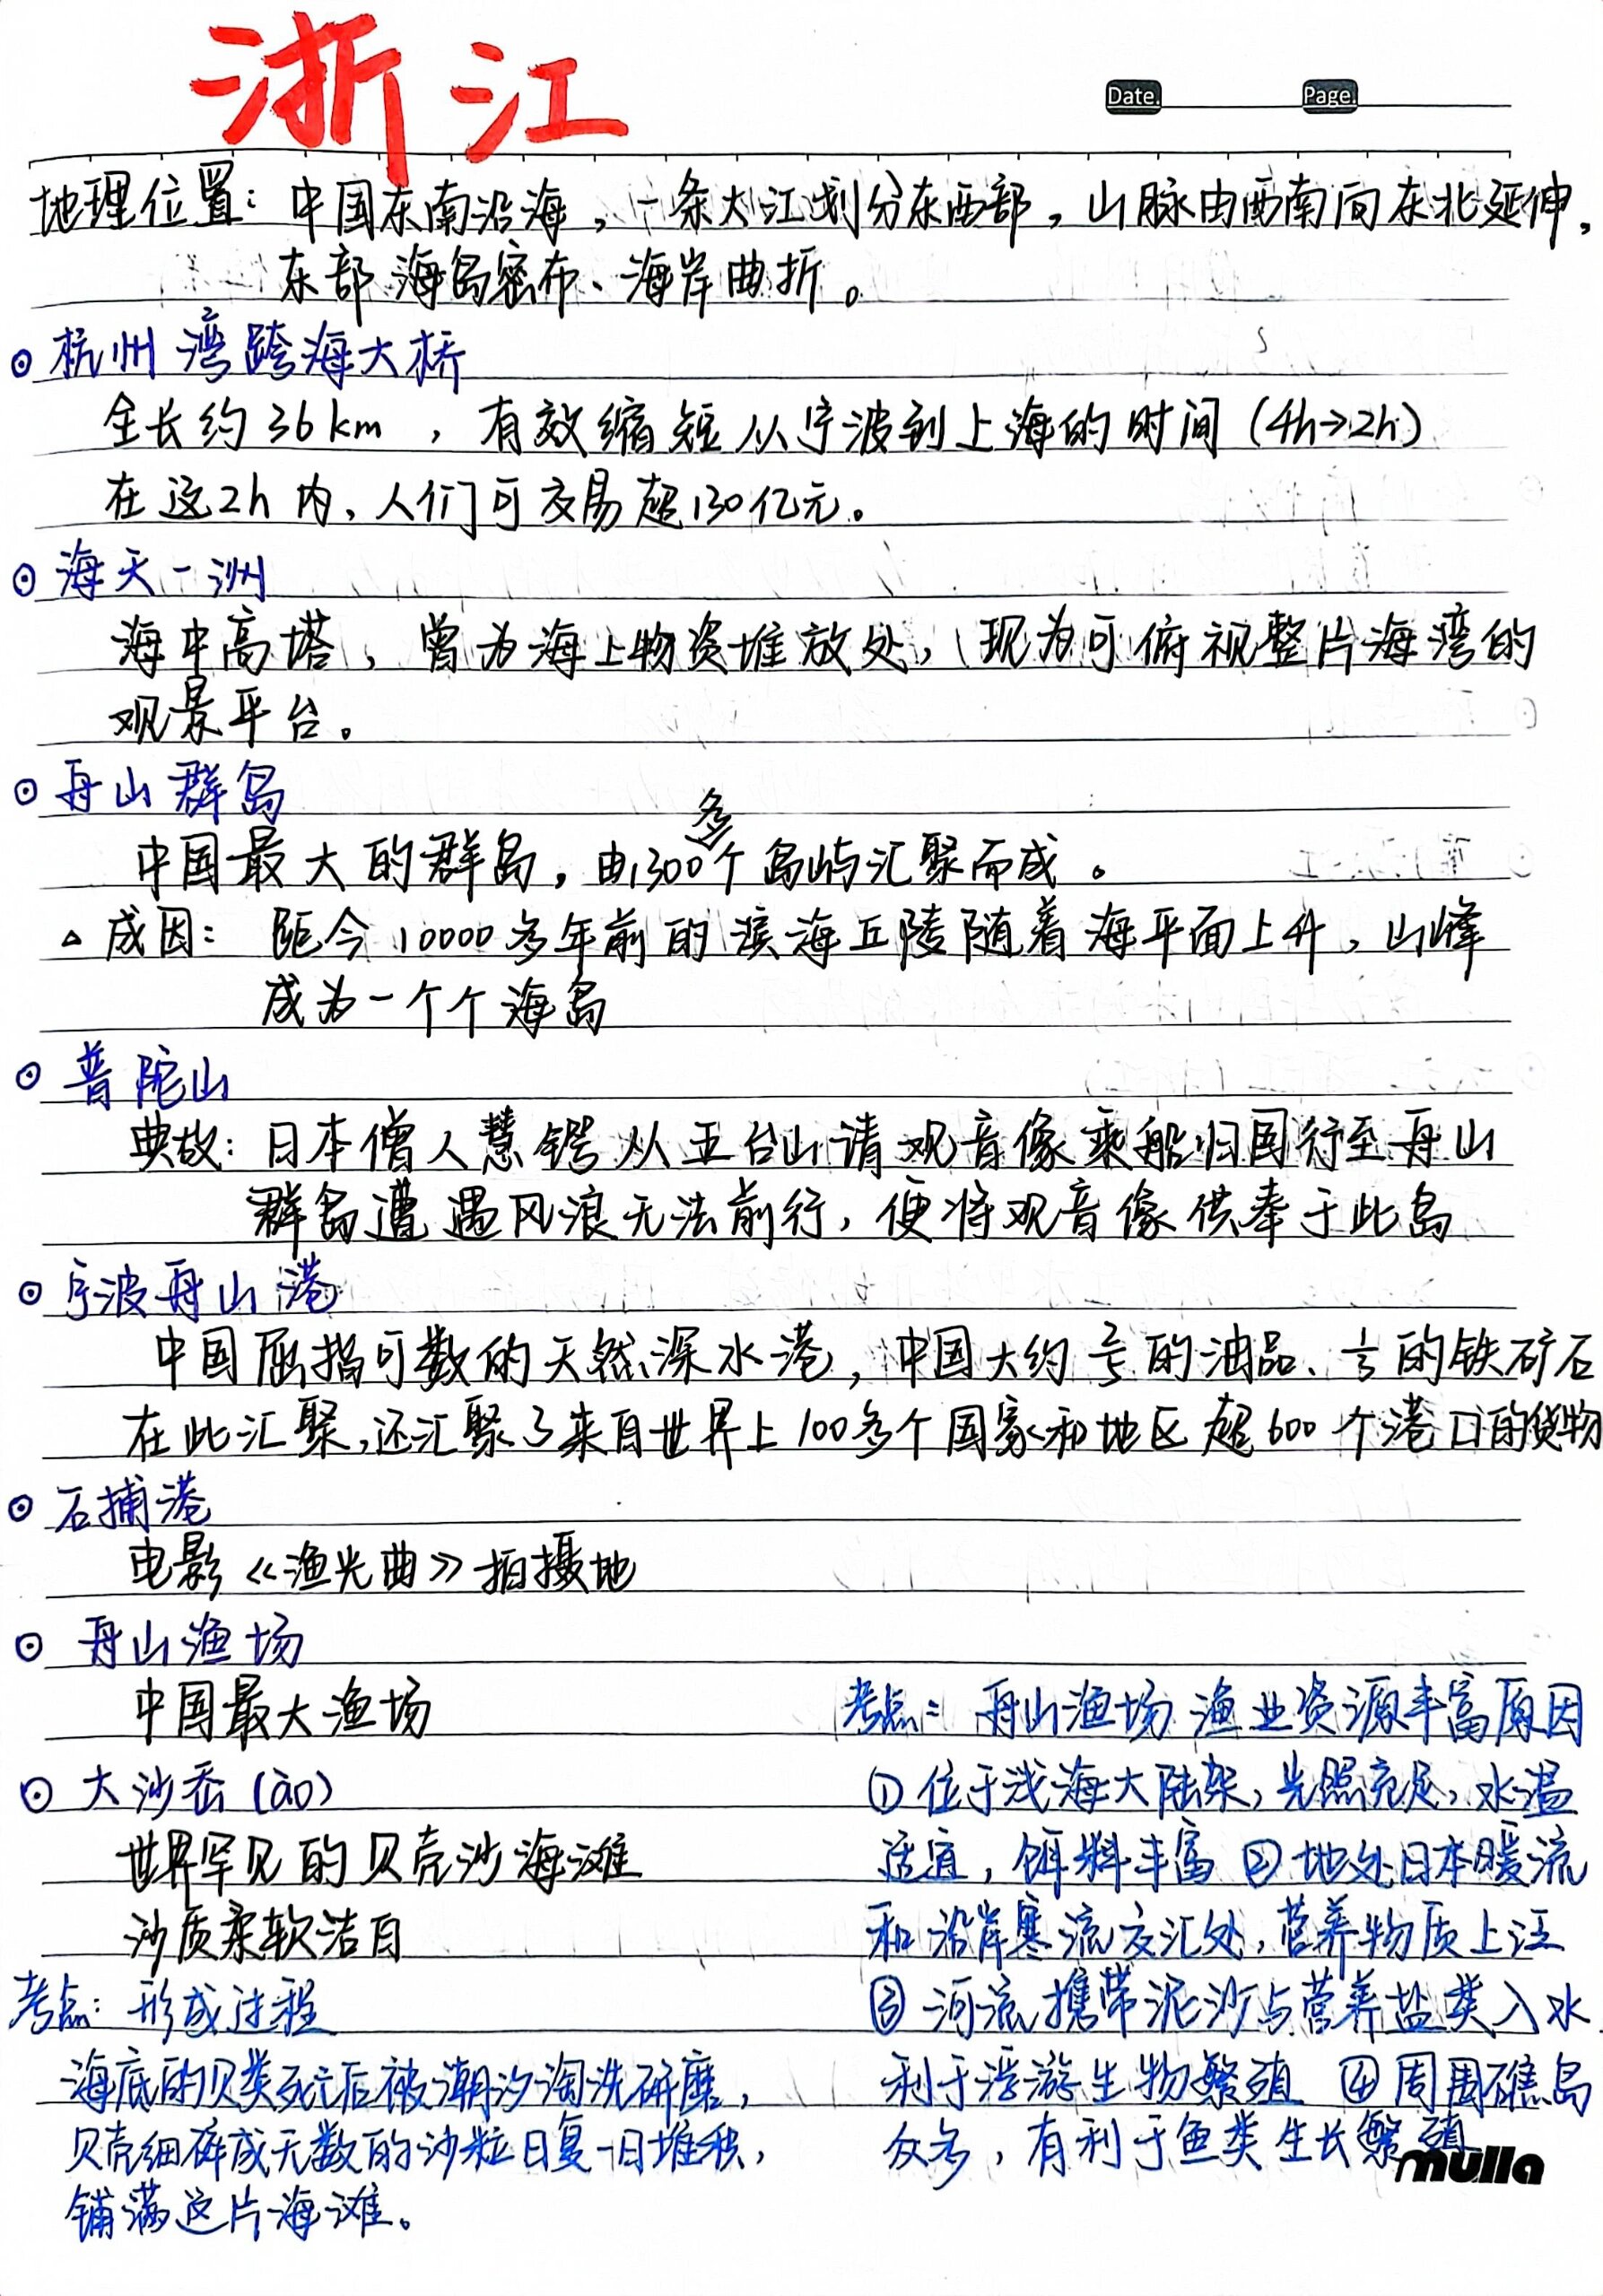 浙江
Date. Page.
地理位置：中国东南沿海，一条大江划分东西部，山脉由西南向东北延伸，
东部海岛密布、海岸曲折。
⊙ 杭州湾跨海大桥
全长约36km，有效缩短从宁波到上海的时间（4h→2h）
在这2h内，人们可交易超130亿元。
⊙ 海天一洲
海中高塔，曾为海上物资堆放处，现为可俯视整片海湾的
观景平台。
⊙ 舟山群岛
中国最大的群岛，由1300多个岛屿汇聚而成。
△ 成因：距今10000多年前的滨海丘陵随着海平面上升，山峰
成为一个个海岛
⊙ 普陀山
典故：日本僧人慧锷从五台山请观音像乘船归国行至舟山
群岛遭遇风浪无法前行，便将观音像供奉于此岛
⊙ 宁波舟山港
中国屈指可数的天然深水港，中国大约的油品、的铁矿石
在此汇聚，还汇聚了来自世界上100多个国家和地区超600个港口的货物
⊙ 石捕港
电影《渔光曲》拍摄地
⊙ 舟山渔场
中国最大渔场
⊙ 大沙岙（ào）
世界罕见的贝壳沙海滩
沙质柔软洁白
考点：形成过程
海底的贝类死亡后被潮汐淘洗研磨，
贝壳细碎成无数的沙粒日复一日堆积，
铺满这片海滩。
考点：舟山渔场渔业资源丰富原因
① 位于浅海大陆架，光照充足，水温
适宜，饵料丰富 ② 地处日本暖流
和沿岸寒流交汇处，营养物质上泛
③ 河流携带泥沙与营养盐类入水
利于浮游生物繁殖 ④ 周围礁岛
众多，有利于鱼类生长繁殖
mulla